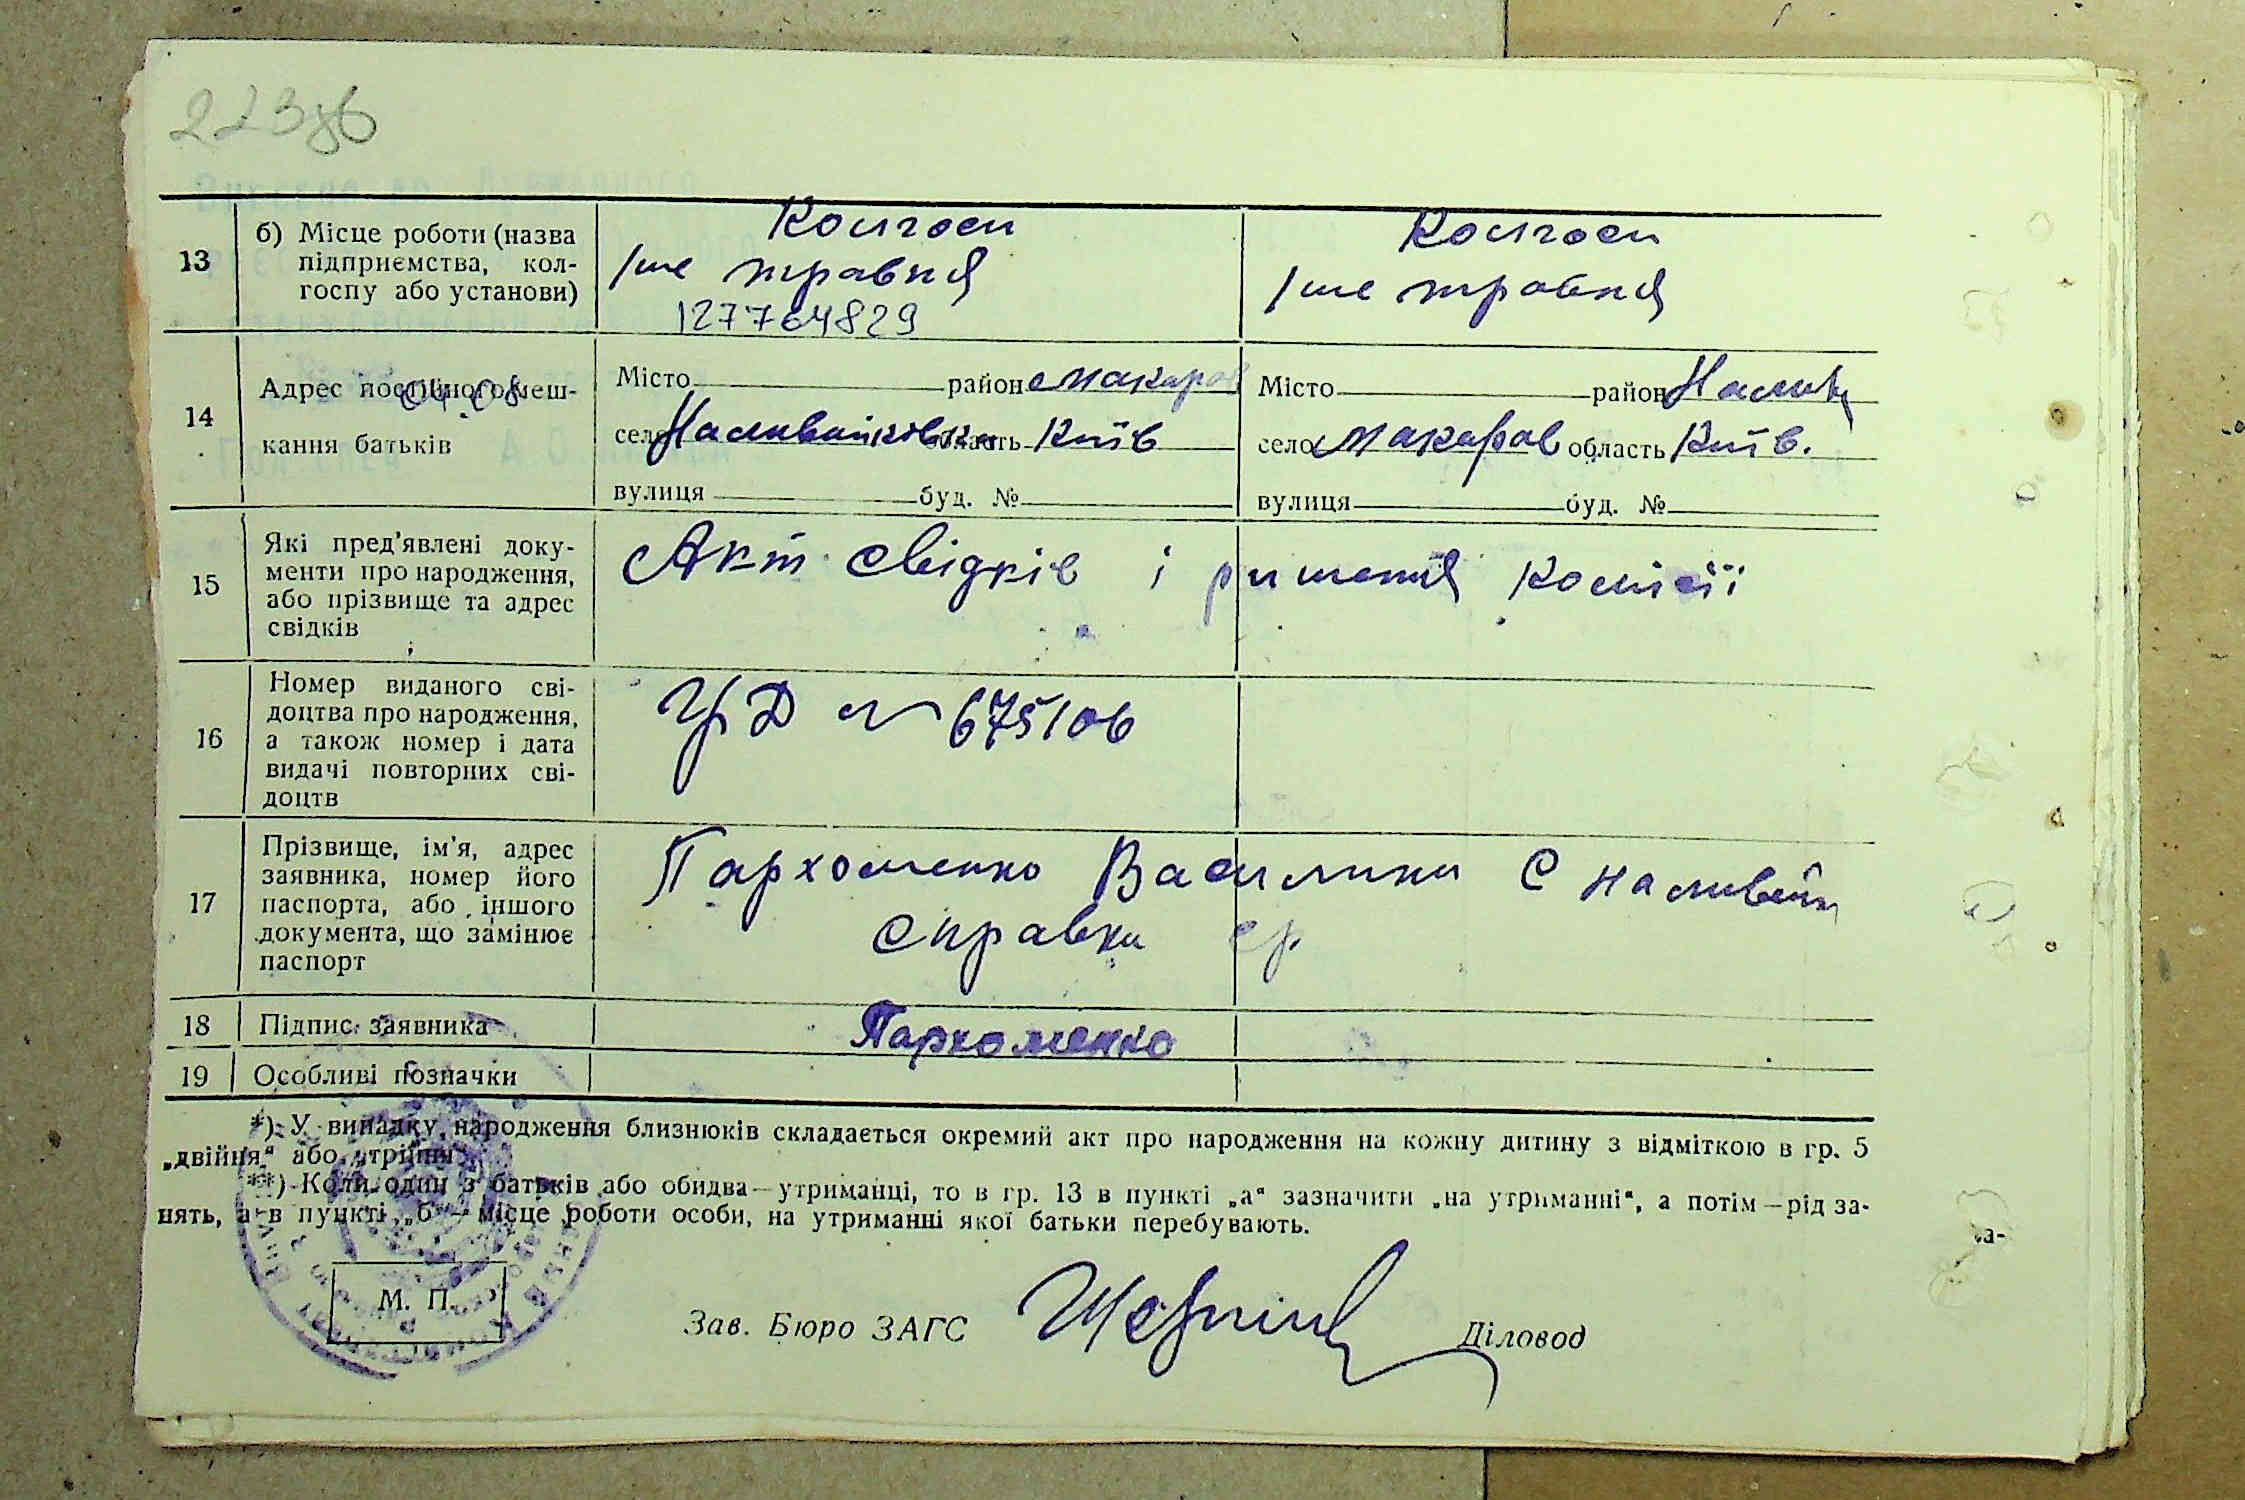 223зв
13 б) Місце роботи (назва Колгосп Колгосп
підприємства, кол- 1ше травня 1ше травня
госпу або установи) 127764829
14 Адрес постійного меш- Місто район Макаров Місто район Налив
04.08
кання батьків село Наливайківка область Київ село Макаров область Київ.
вулиця буд. № вулиця буд. №
15 Які пред'явлені доку- Акт свідків і ришення комісії
менти про народження,
або прізвище та адрес
свідків
16 Номер виданого сві- УРД № 675106
доцтва про народження,
а також номер і дата
видачі повторних сві-
доцтв
17 Прізвище, ім'я, адрес Пархоменко Василини С Наливайк
заявника, номер його
паспорта, або іншого справки ср
документа, що замінює
паспорт
18 Підпис заявника Пархоменко
19 Особливі позначки
*) У випадку народження близнюків складається окремий акт про народження на кожну дитину з відміткою в гр. 5
„двійня“ або „трійня“.
**) Коли один з батьків або обидва—утриманці, то в гр. 13 в пункті „а“ зазначити „на утриманні“, а потім—рід за-
нять, а в пункті „б“— місце роботи особи, на утриманні якої батьки перебувають.
а-
М. П.
Зав. Бюро ЗАГС Діловод